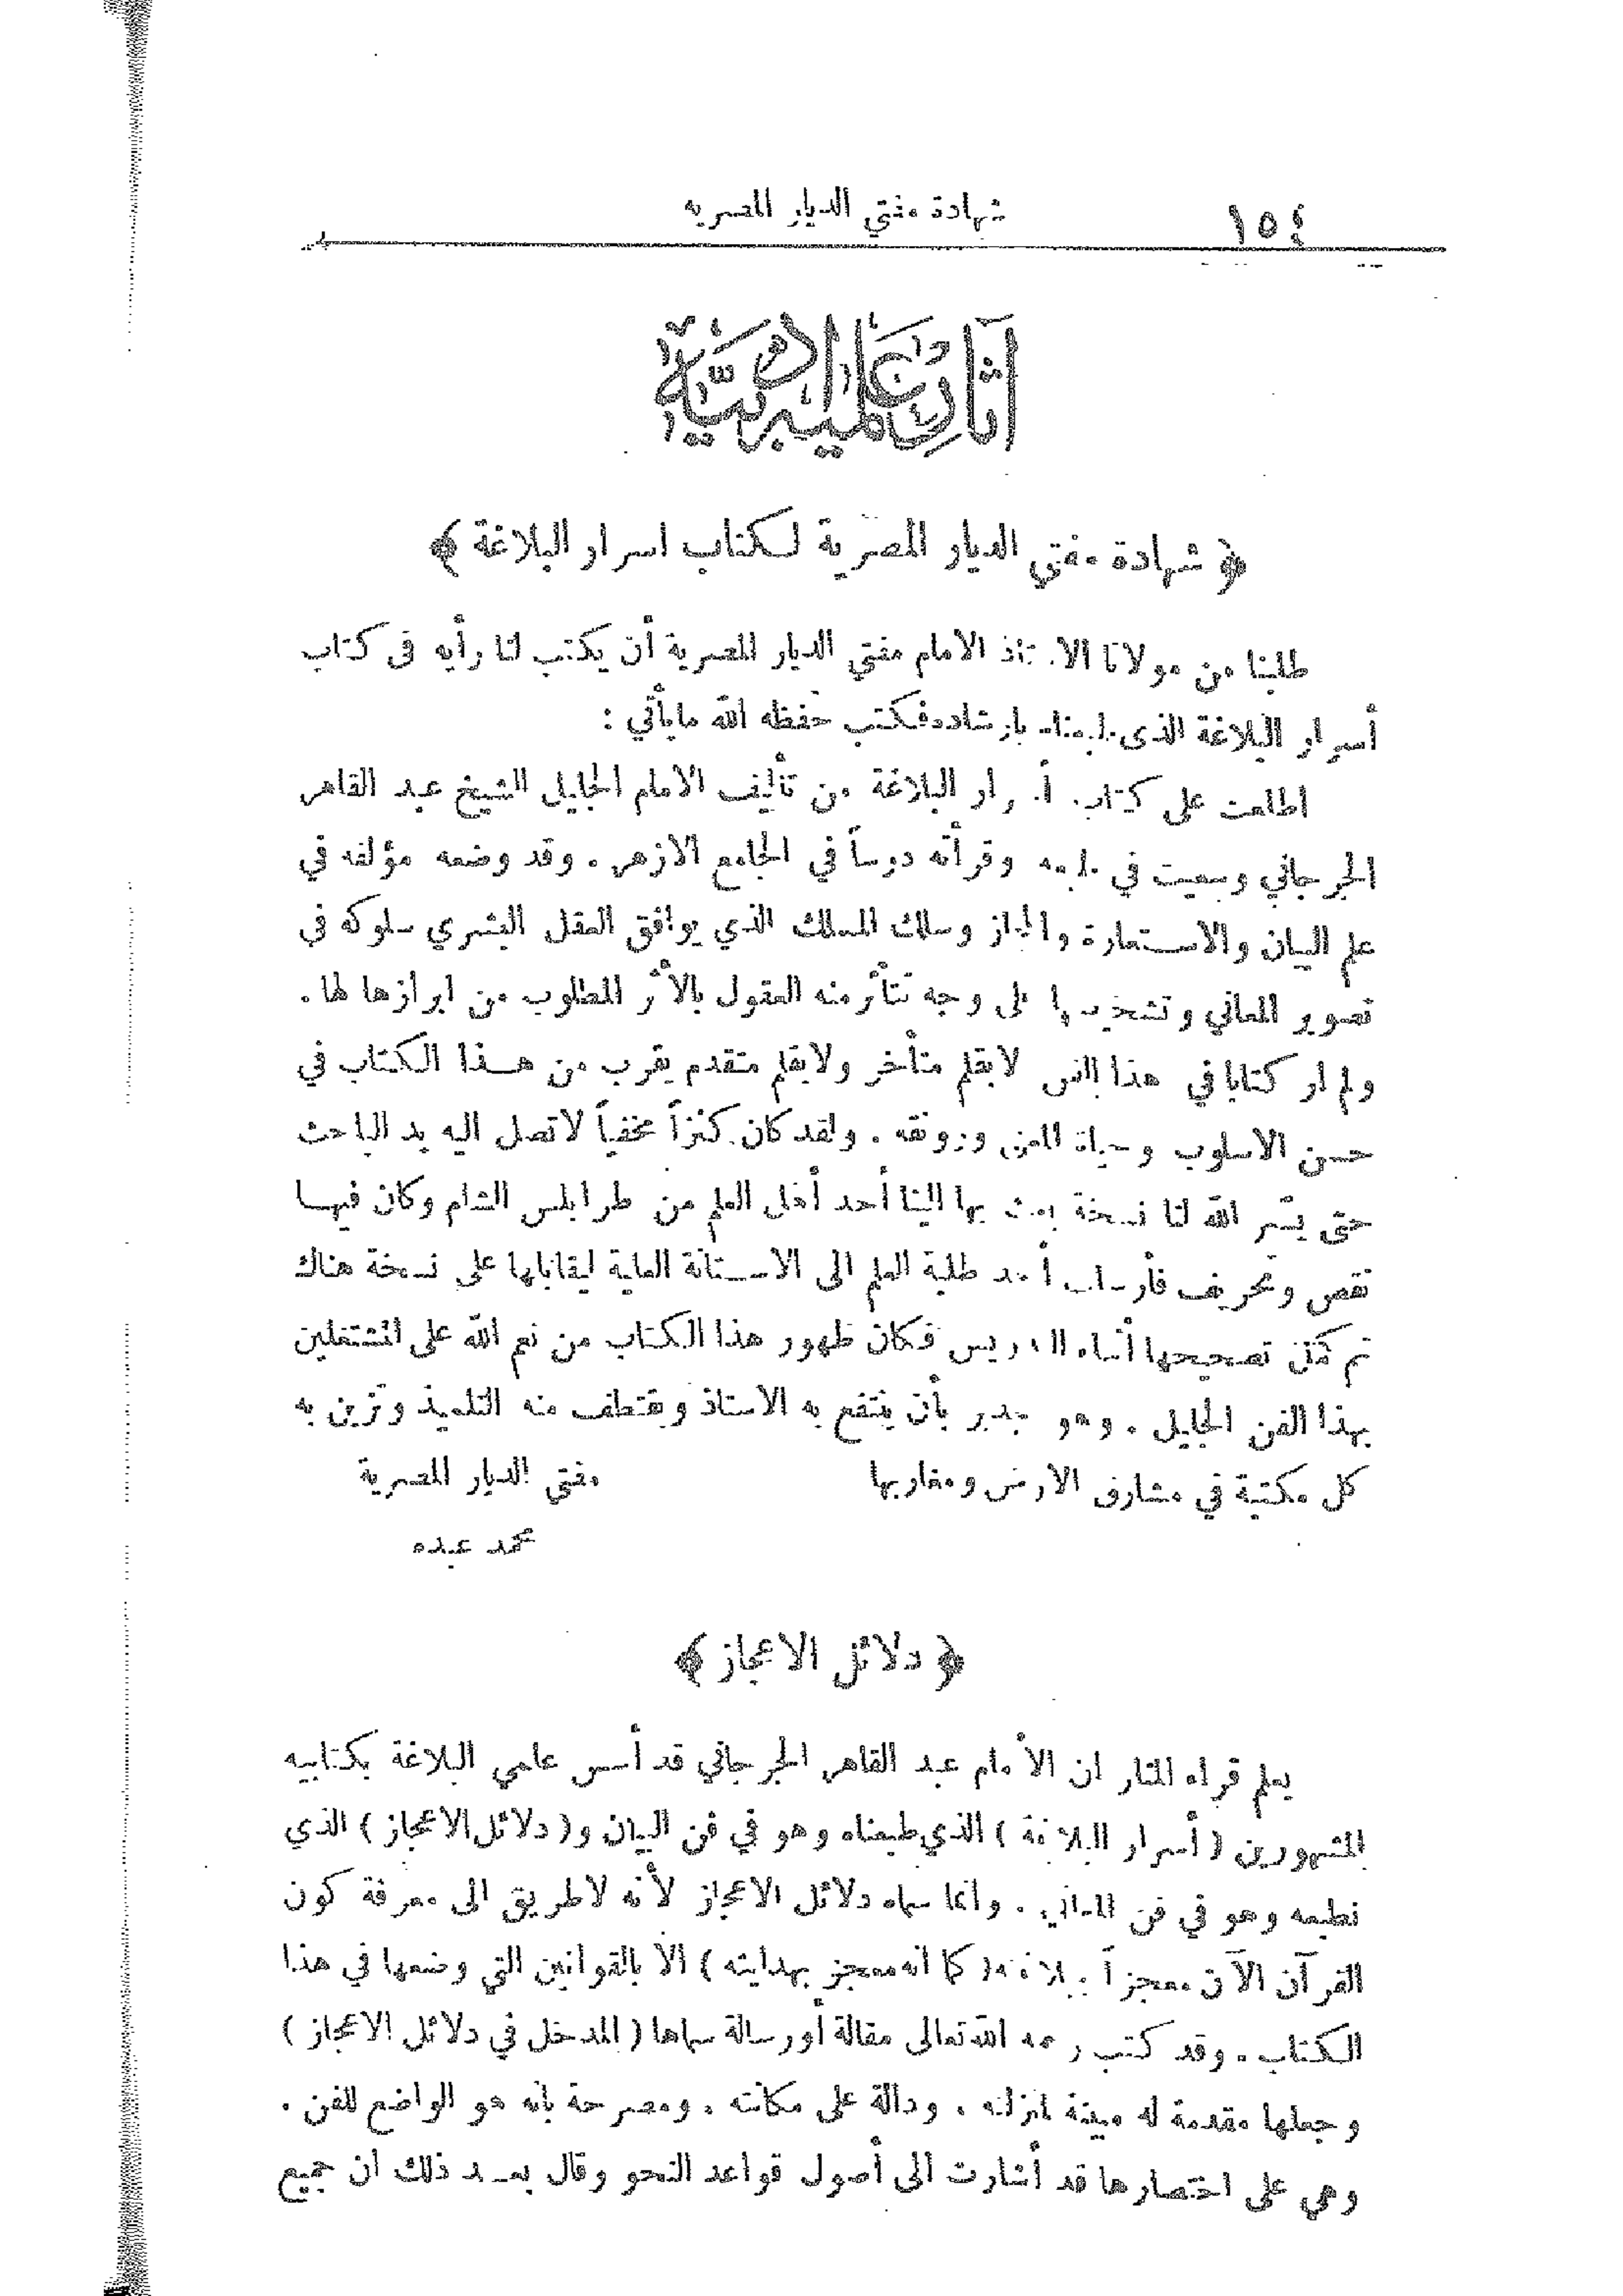 ١٥٤
شهادة مفتي الديار المصريه
آثار علمية أدبية
﴿ شهادة مفتي الديار المصرية لكتاب اسرار البلاغة ﴾
طلبنا من مولانا الاستاذ الامام مفتي الديار المصرية أن يكتب لنا رأيه فى كتاب
أسرار البلاغة الذى طبعناه بارشاده فكتب حفظه الله ما يأتي :
اطلعت على كتاب أسرار البلاغة من تأليف الامام الجليل الشيخ عبد القاهر
الجرجاني وسعيت في طبعه وقرأته درساً في الجامع الازهر . وقد وضعه مؤلفه في
علم البيان والاستعارة والمجاز وسلك المسلك الذي يوافق العقل البشري سلوكه فى
تصوير المعاني وتشخيصها على وجه تتأثر منه العقول بالأثر المطلوب من ابرازها لها .
ولم ار كتابا في هذا الفن لا بقلم متأخر ولا بقلم متقدم يقرب من هذا الكتاب في
حسن الاسلوب وحياة المعنى ورونقه . ولقد كان كنزاً مخفياً لاتصل اليه يد الباحث
حتى يسّر الله لنا نسخة بعث بها الينا أحد أهل العلم من طرابلس الشام وكان فيها
نقص وتحريف فأرسلت أحد طلبة العلم الى الاستانة العلية ليقابلها على نسخة هناك
ثم تصحيحها أثناء التدريس فكان ظهور هذا الكتاب من نعم الله على المشتغلين
بهذا الفن الجليل . وهو جدير بأن ينتفع به الاستاذ ويقتطف منه التلميذ وتزين به
كل مكتبة في مشارق الارض ومغاربها
مفتي الديار المصرية
محمد عبده
﴿ دلائل الاعجاز ﴾
يعلم قراء المنار ان الأمام عبد القاهر الجرجاني قد أسس علمي البلاغة بكتابيه
المشهورين ( أسرار البلاغة ) الذي طبعناه وهو في فن البيان و( دلائل الاعجاز ) الذي
نطبعه وهو في فن المعاني . وانما سماه دلائل الاعجاز لأنه لاطريق الى معرفة كون
القرآن الآن معجزاً ببلاغته ( كما انه معجز بهدايته ) الا بالقوانين التي وضعها في هذا
الكتاب . وقد كتب رحمه الله تعالى مقالة أو رسالة سماها ( المدخل في دلائل الاعجاز )
وجعلها مقدمة له مبينة لمنزلته ، ودالة على مكانته ، ومصرحة بأنه هو الواضع للفن .
وهي على اختصارها قد أشارت الى أصول قواعد النحو وقال بعد ذلك ان جميع